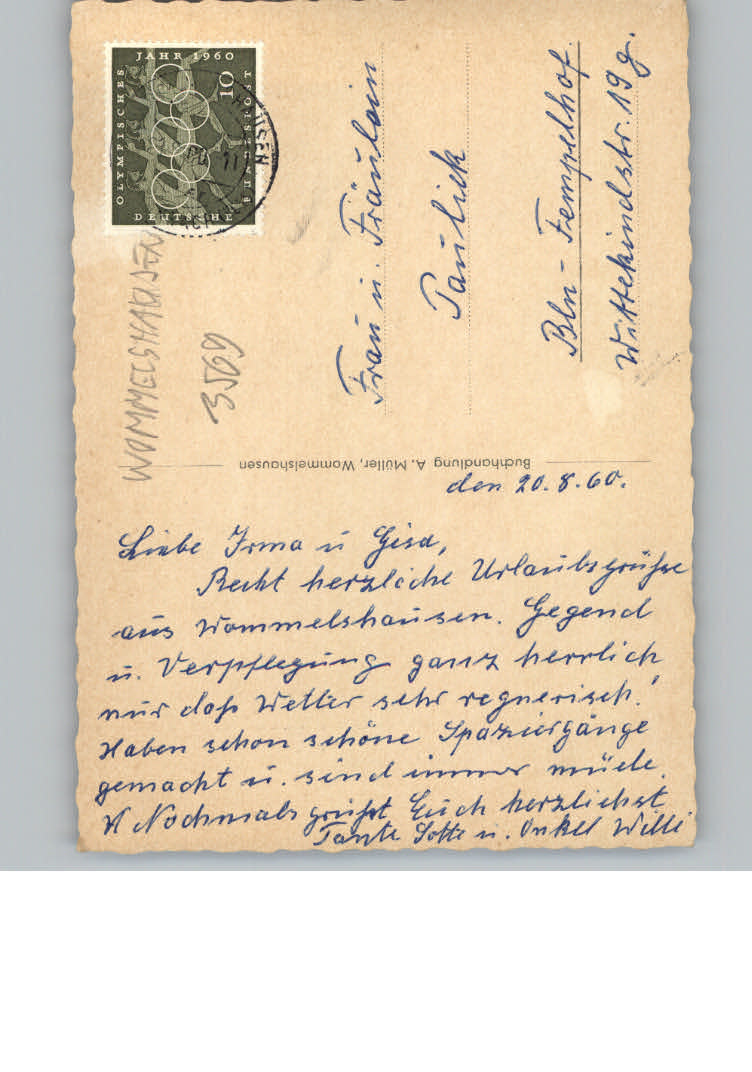 JAHR 1960
OLYMPISCHES
10
BUNDESPOST
DEUTSCHE
HAUSEN
WOMMELSHAUSEN
3569
Frau u. Fräulein
Paulick
Bln-Tempelhof.
Wittekindstr. 19 g.
Buchhandlung A. Müller, Wommelshausen
den 20.8.60.
Liebe Irma u Gisa,
Recht herzliche Urlaubsgrüße
aus Wommelshausen. Gegend
u. Verpflegung ganz herrlich,
nur daß Wetter sehr regnerisch!
Haben schon schöne Spaziergänge
gemacht u. sind immer müde.
Nochmals grüßt Euch herzlichst
Tante Lotte u. Onkel Willi